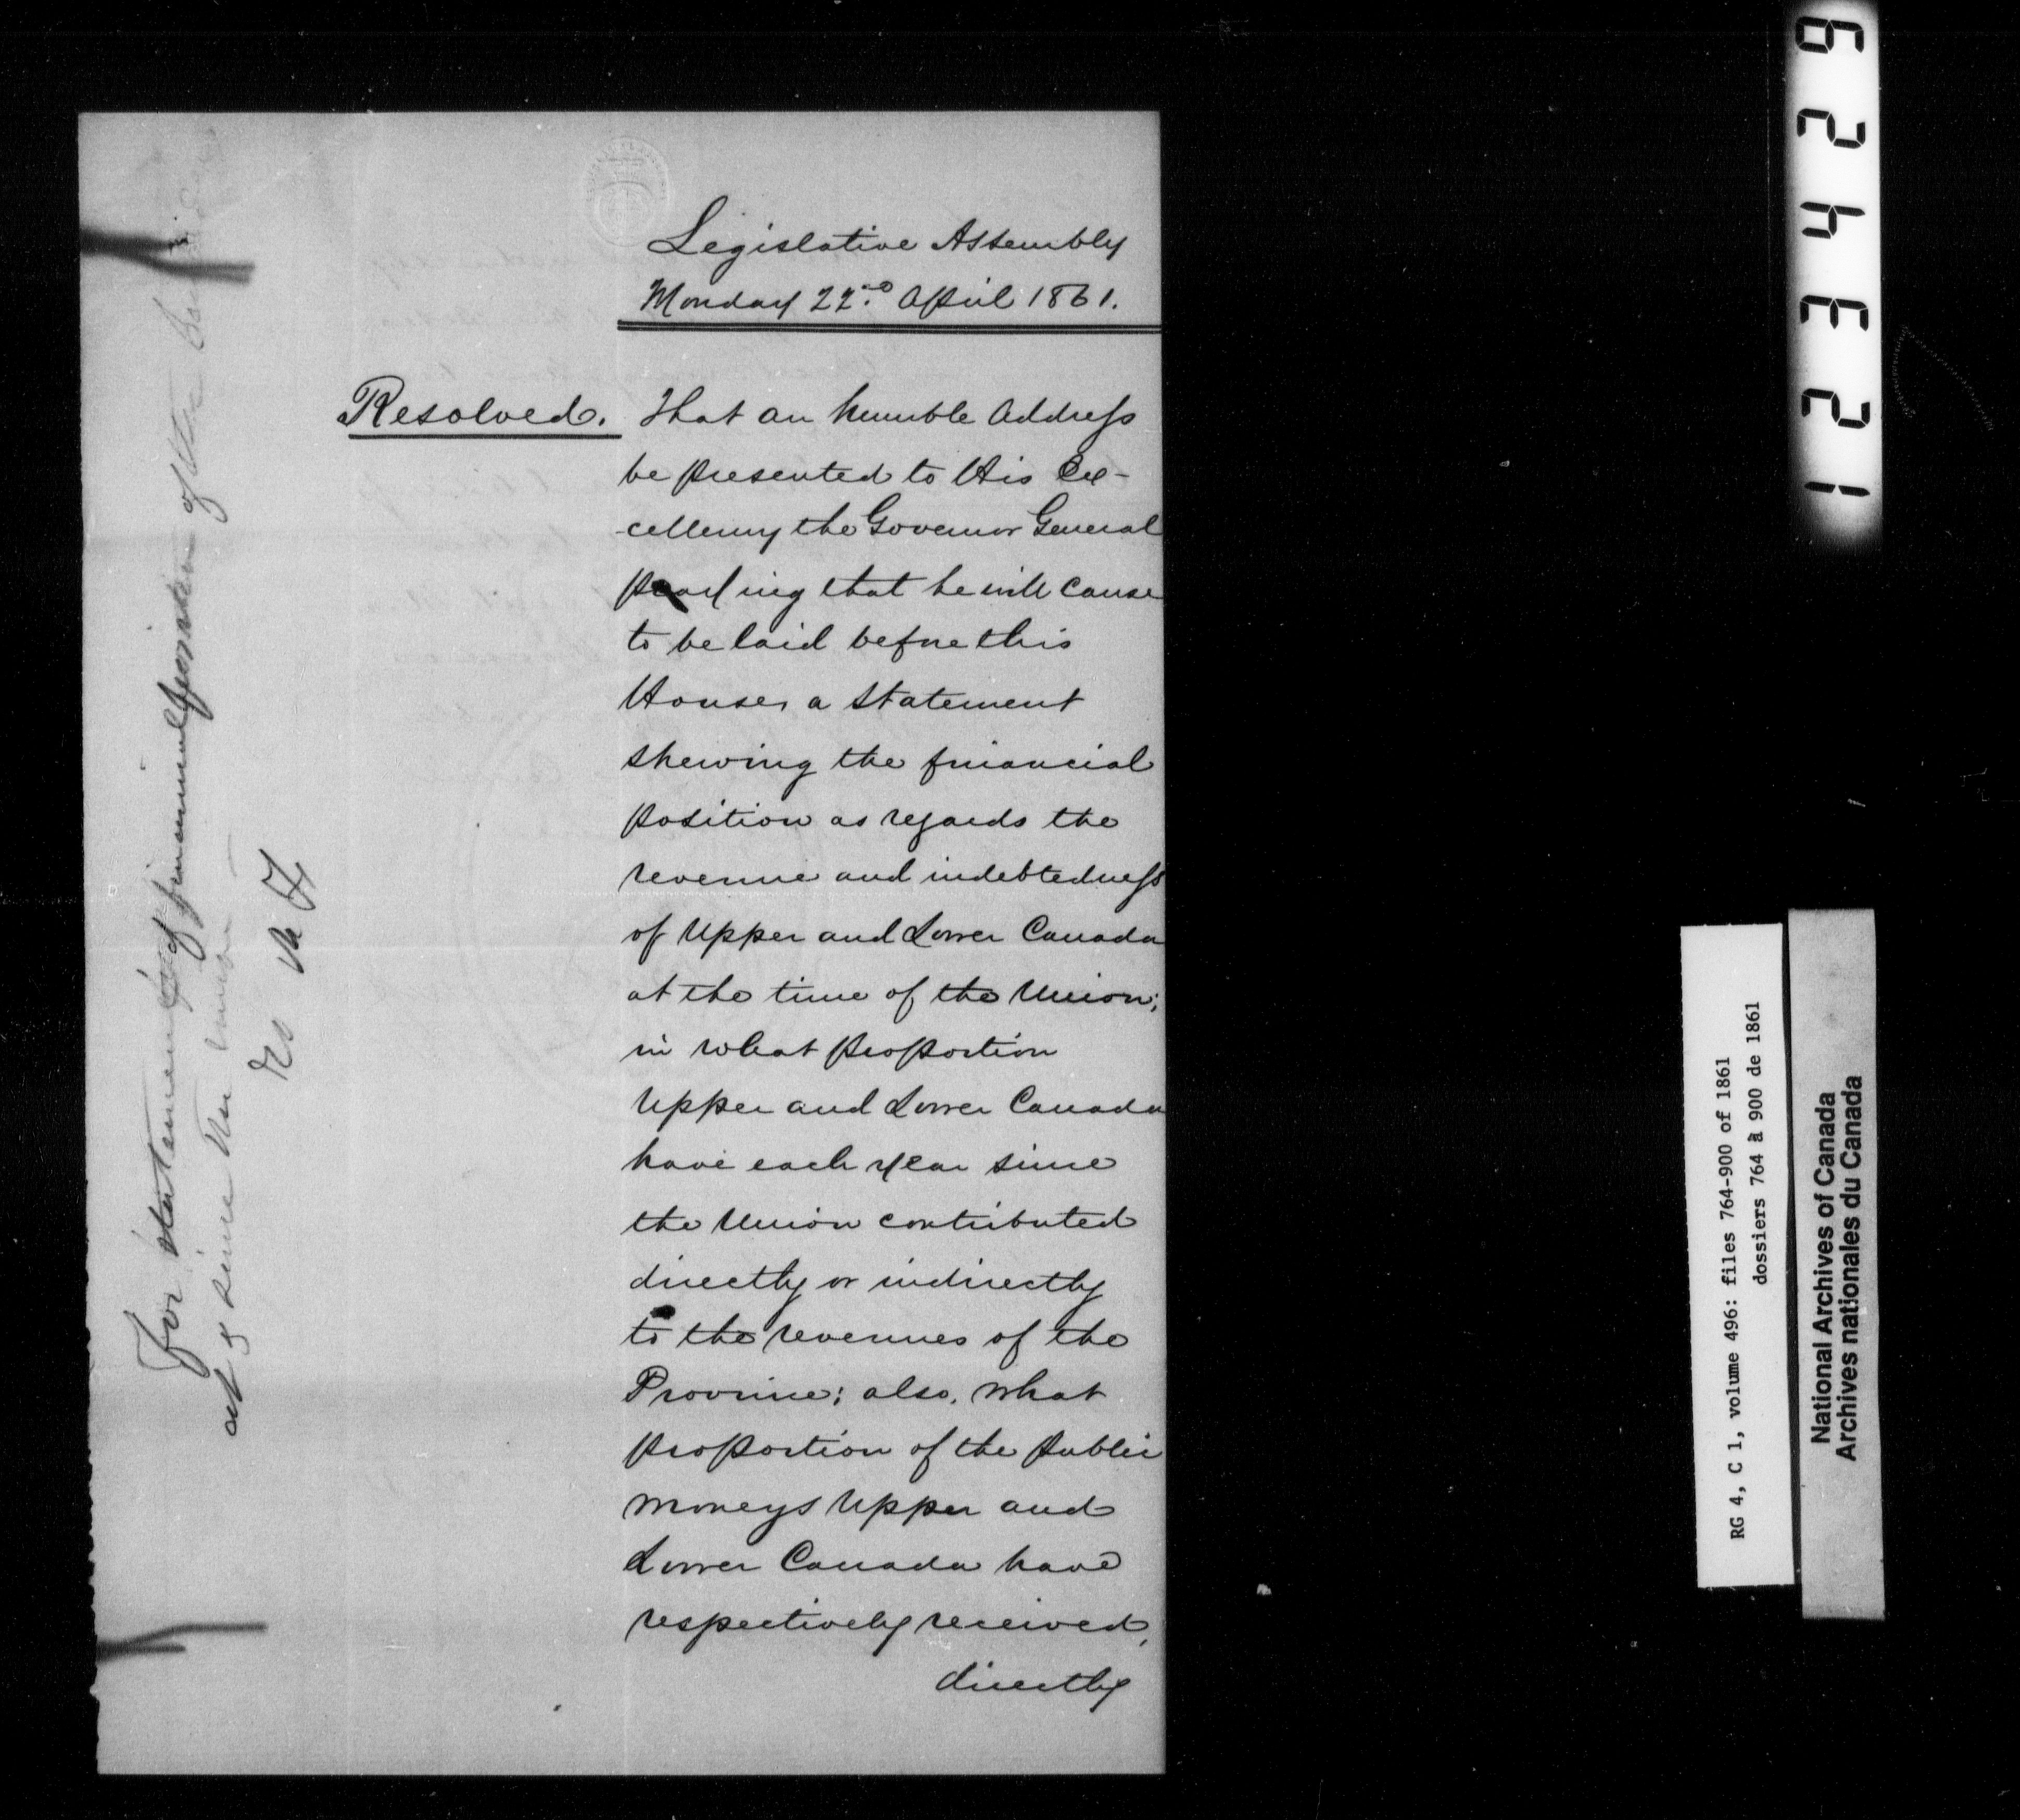 Legislative Assembly
Monday 22nd April 1861.
Resolved. That an humble Address
be presented to His Ex-
-cellency the Governor General
praying that he will cause
to be laid before this
House, a statement
shewing the financial
position as regards the
revenue and indebtedness
of Upper and Lower Canada
at the time of the Union;
in what proportion
Upper and Lower Canada
have each year since
the Union contributed
directly or indirectly
to the revenues of the
Province; also, what
proportion of the public
moneys Upper and
Lower Canada have
respectively received,
directly
For statement of financial position of the
at & since the Union
123429
RG 4, C 1, volume 496: files 764-900 of 1861
dossiers 764 à 900 de 1861
National Archives of Canada
Archives nationales du Canada